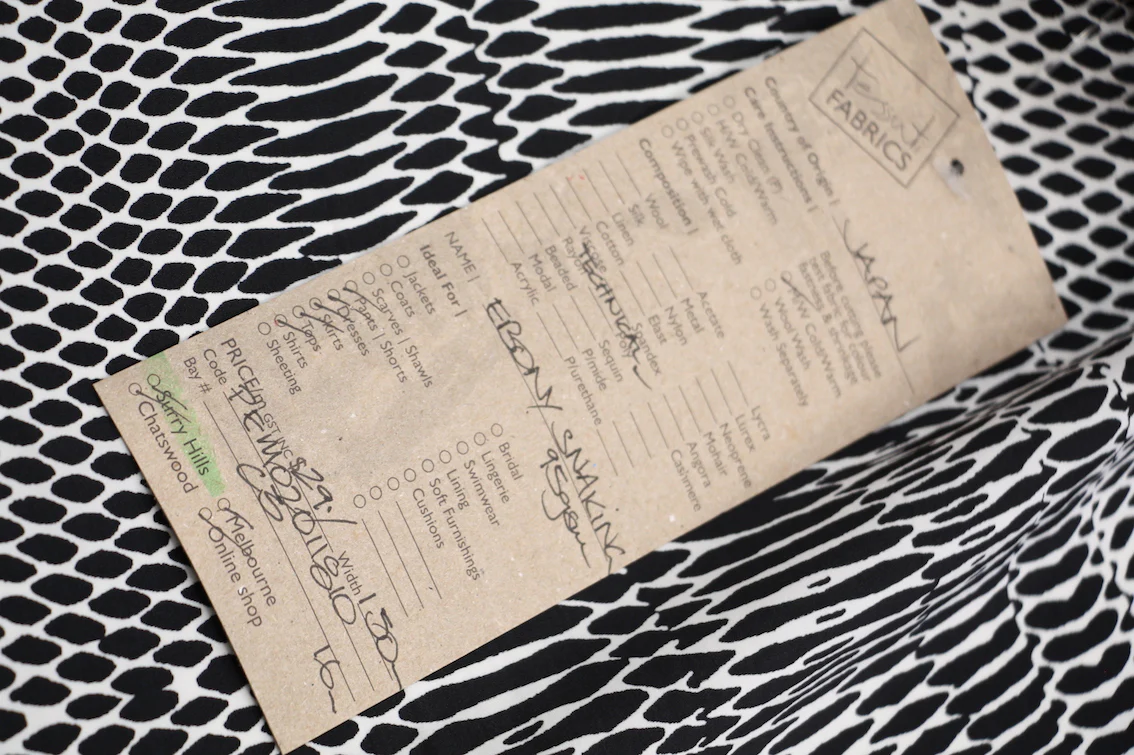 Tessuti
FABRICS
Country of Origin | JAPAN
Care Instructions |
Dry Clean (P)
H/W Cold/Warm
Silk Wash
Prewash Cold
Wipe with wet cloth
Before cutting please
test for colour
fastness & shrinkage
H/W Cold/Warm
Wool Wash
Wash Separately
Composition |
Wool
Silk
Linen
Cotton
Viscose
Rayon
Beaded
Modal
Acrylic
Acetate
Metal
Nylon
Elast
Spandex
Poly
Sequin
P/mide
P/urethane
Lycra
Lurex
Neoprene
Mohair
Angora
Cashmere
NAME | EBONY SNAKING
95gsm
Ideal For |
Jackets
Coats
Scarves | Shawls
Pants | Shorts
Dresses
Skirts
Tops
Shirts
Sheeting
Bridal
Lingerie
Swimwear
Lining
Soft Furnishings
Cushions
PRICE/m GST INC $29
Width 150
Code
Bay # G3
16m
Surry Hills
Chatswood
Melbourne
Online shop